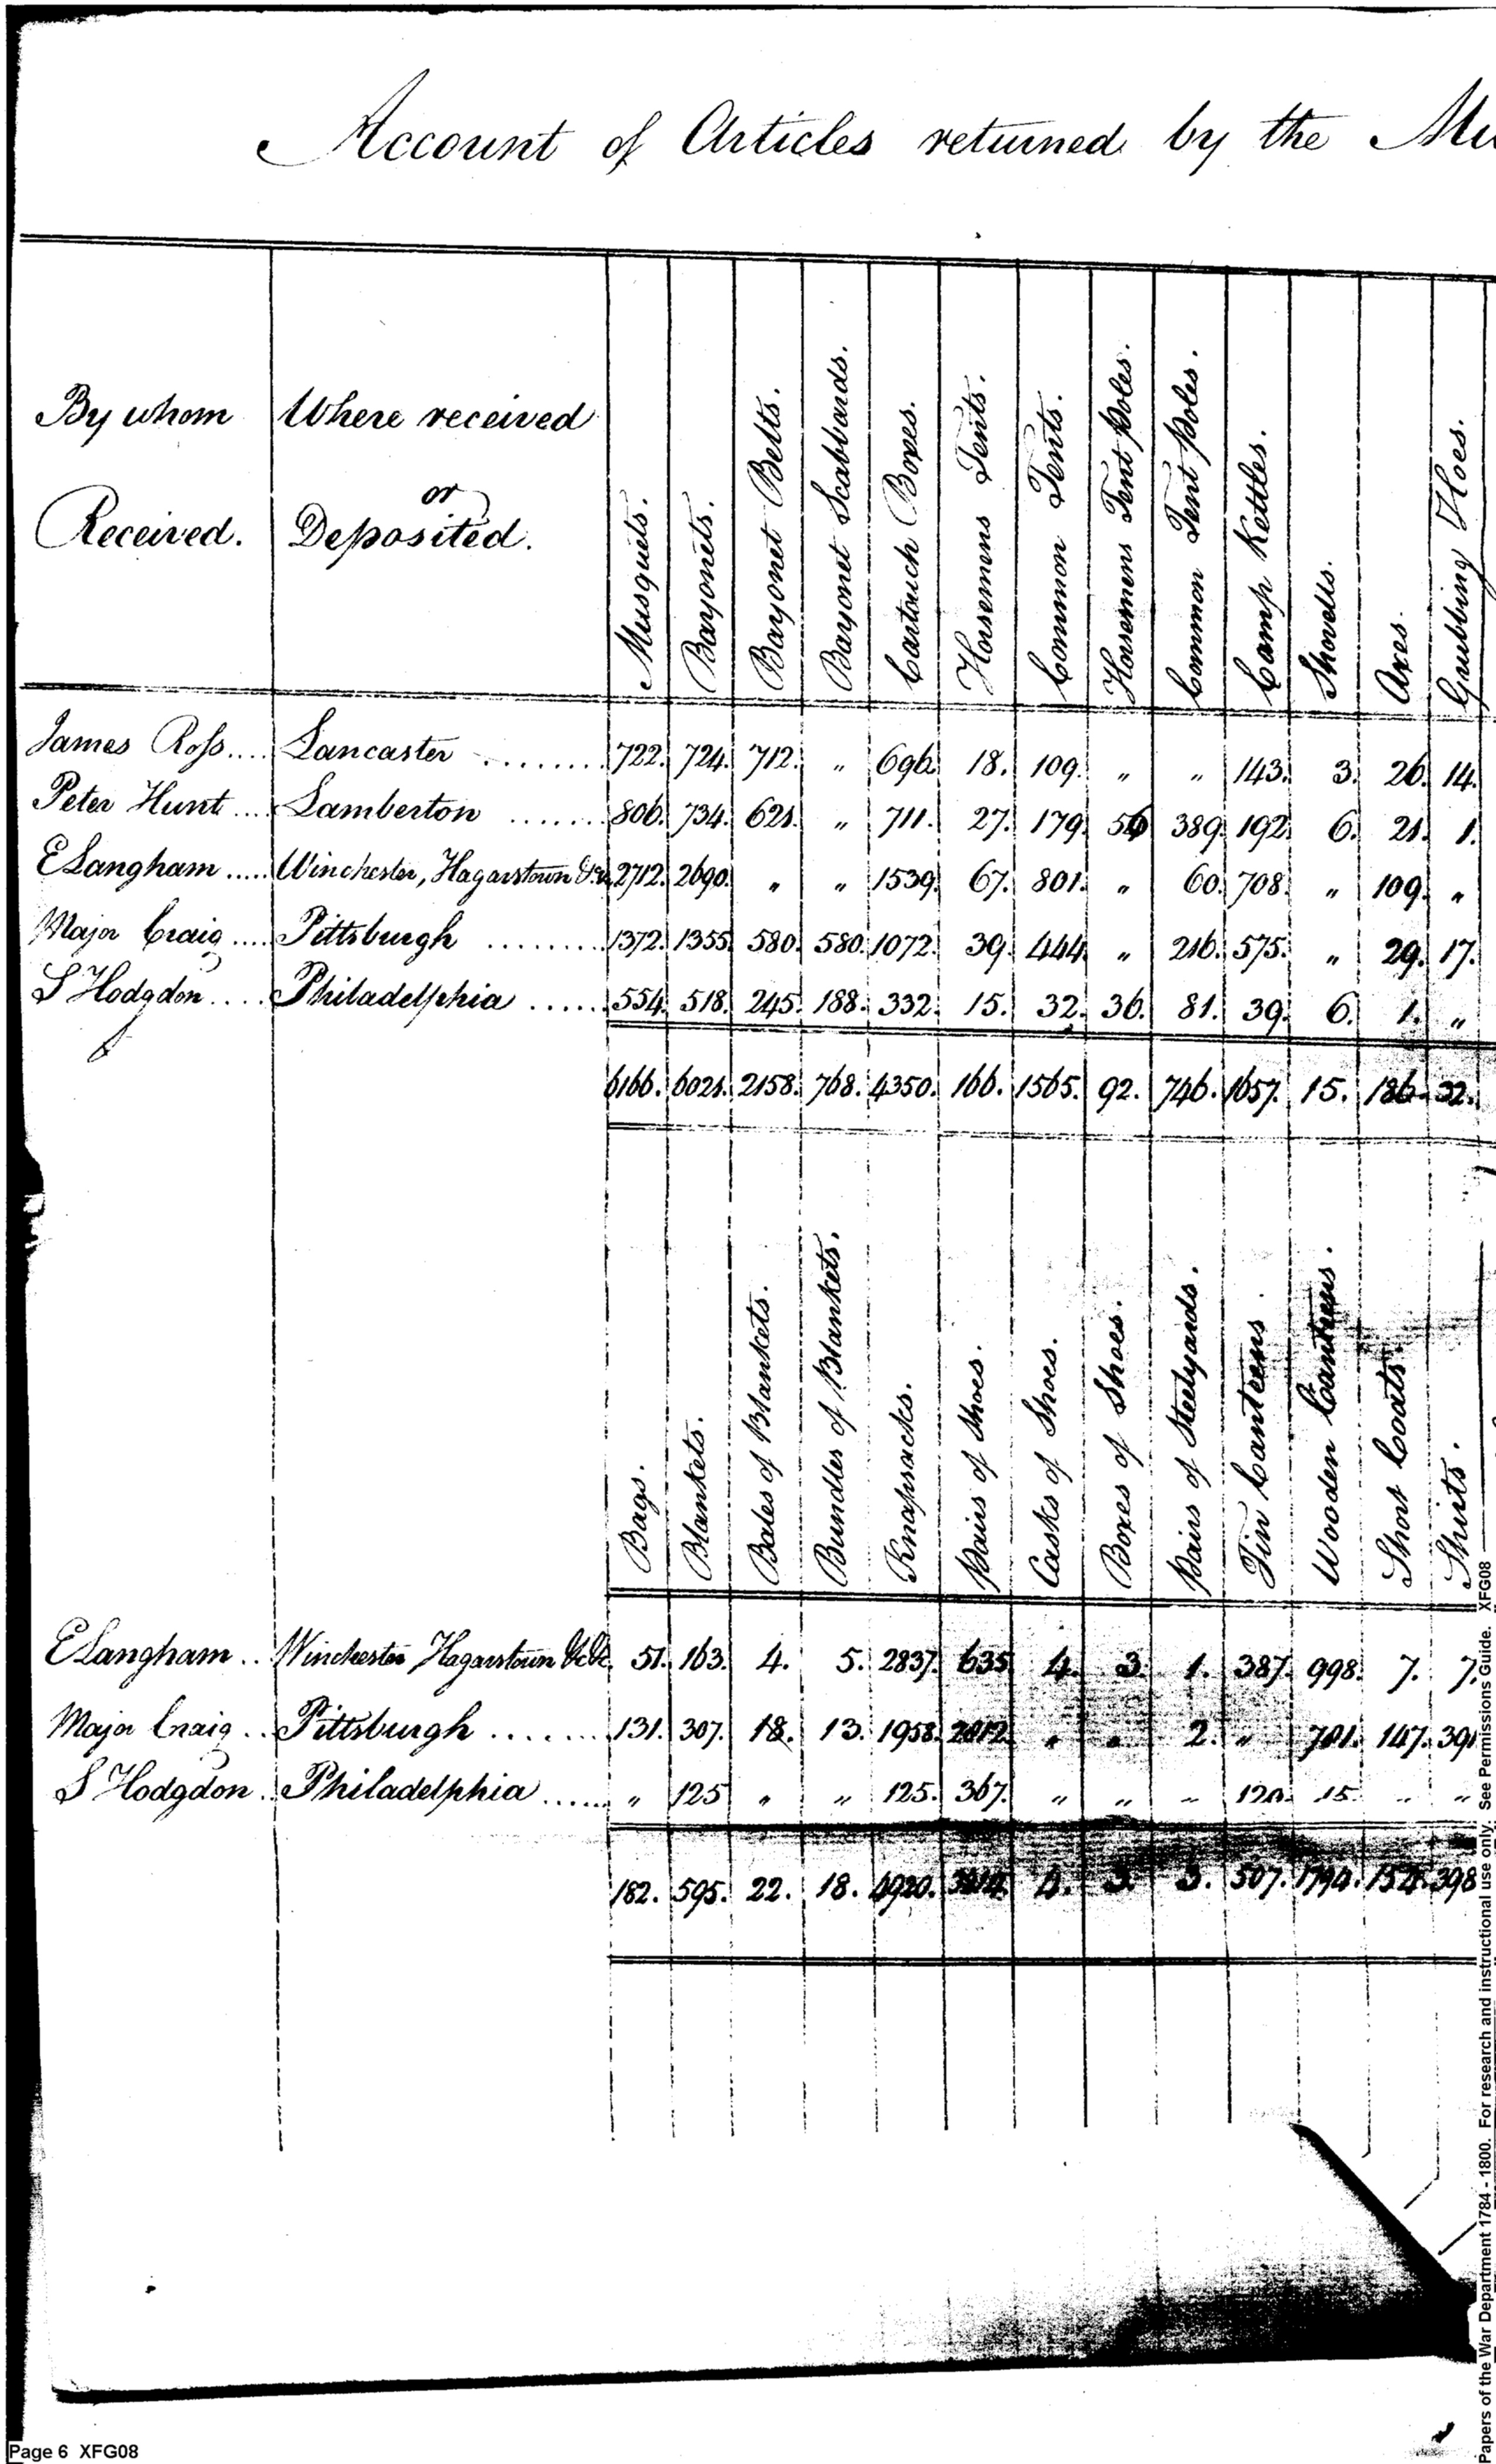 Account of Articles returned by the
By whom Received. Where received or Deposited. Musquets. Bayonets. Bayonet Belts. Bayonet Scabbards. Cartouch Boxes. Horsemens Tents. Common Tents. Horsemens Tent Poles. Common Tent Poles. Camp Kettles. Shovells. Axes. Grubbing Hoes.
James Ross.... Lancaster ........ 722. 724. 712. " 696. 18. 109. " " 143. 3. 26. 14.
Peter Hunt .... Lamberton ...... 806. 734. 621. " 711. 27. 179. 56 389. 192. 6. 21. 1.
E Langham ..... Winchester, Hagarstown &c. 2712. 2690. " " 1539. 67. 801. " 60. 708. " 109. "
Major Craig .... Pittsburgh ........ 1372. 1355. 580. 580. 1072. 39. 444. " 216. 575. " 29. 17.
S Hodgdon .... Philadelphia ..... 554. 518. 245. 188. 332. 15. 32. 36. 81. 39. 6. 1. "
6166. 6021. 2158. 768. 4350. 166. 1565. 92. 746. 1657. 15. 186. 32.
Bags. Blankets. Bales of Blankets. Bundles of Blankets. Knapsacks. Pairs of Shoes. Casks of Shoes. Boxes of Shoes. Pairs of Steelyards. Tin Canteens. Wooden Canteens. Short Coats. Shirts.
E Langham .. Winchester Hagarstown &c &c. 51. 163. 4. 5. 2837. 635 4. 3. 1. 387. 998. 7. 7.
Major Craig .. Pittsburgh ....... 131. 307. 18. 13. 1958. 2012. " " 2. " 781. 147. 391
S Hodgdon .. Philadelphia ...... " 125 " " 125. 367. " " " 120. 15. " "
182. 595. 22. 18. 4920. 3014. 4. 3. 3. 507. 1794. 154. 398
Page 6 XFG08
Papers of the War Department 1784 - 1800. For research and instructional use only. See Permissions Guide. XFG08